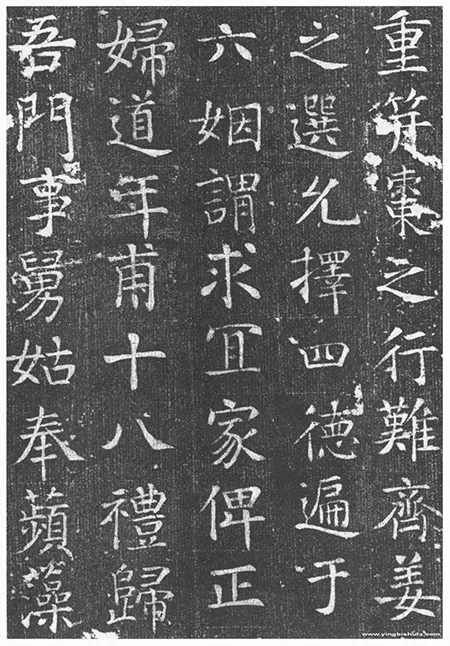 重笄棗之行難齊姜
之選允擇四徳遍于
六姻謂求冝家俾正
婦道年甫十八禮歸
吾門事舅姑奉蘋藻
www.yingbishufa.com